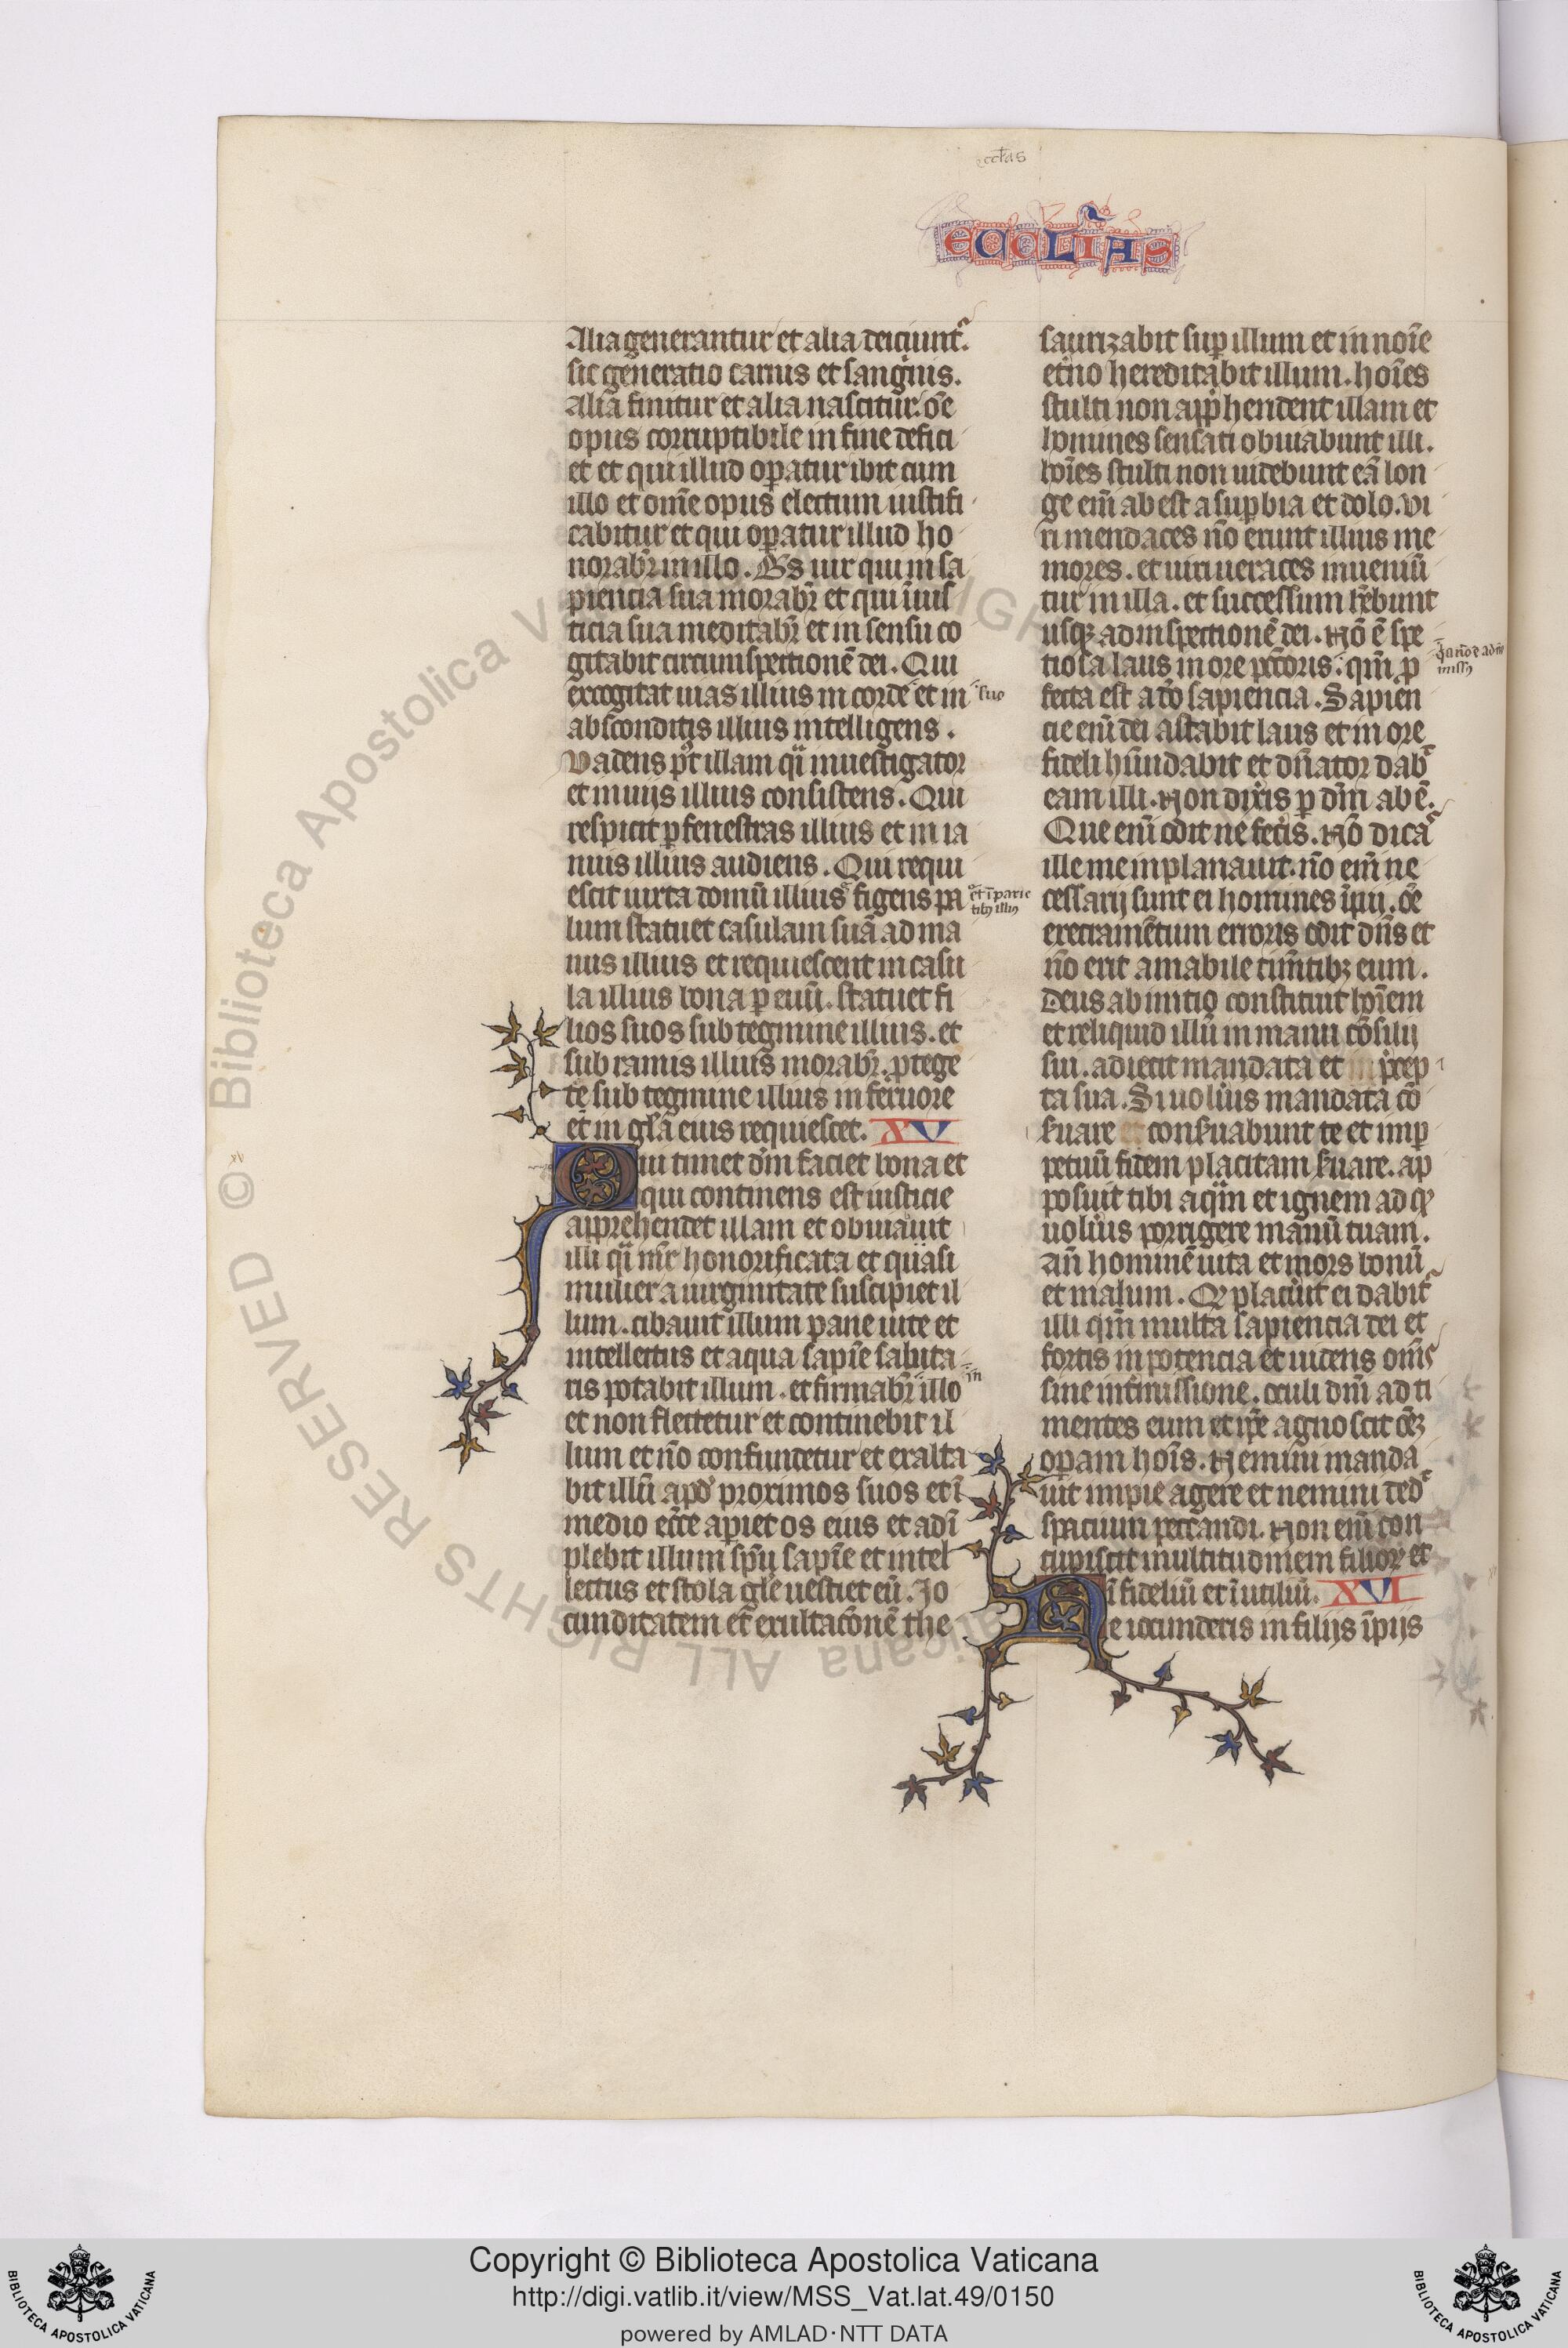 eccl̃as
ECCLĨAS
Alia generantur et alia deiciunt᷑.
sic generatio carnis et sanguinis.
Alia finitur et alia nascitur. õe
opus corruptibile in fine defici
et et qui illud op̱atur ibit cum
illo et om̃e opus electum iustifi
cabitur et qui op̱atur illud ho
norab̃r in illo. B̃s uir qui in sa
piencia sua morab̃r et qui ĩ ius
ticia sua meditab̃r et in sensu co
gitabit circumspectionẽ dei. Qui
excogitat uias illius in corde et in
suo
absconditis illius intelligens.
Vadens p̃t illam q̃i inuestigator
et in uijs illius consistens. Qui
respicit p̱ fenestras illius et in ia
nuis illius audiens. Qui requi
escit iuxta domũ illius figens pa
et ĩ parie
tibꝫ illiꝰ
lum statuet casulam suã ad ma
nus illius et requiescent in casu
la illius bona p̱ euũ. statuet fi
lios suos sub tegmine illius. et
sub ramis illius morab̃r. ꝓtege
te sub tegmine illius in feruore
et in gl̃a eius requiescet. XV
Qui timet dm̃ faciet bona et
qui continens est iusticie
apprehendet illam et obuiauit
illi q̃i mr̃ honorificata et quasi
mulier a uirginitate suscipiet il
lum. cibauit illum pane uite et
intellectus et aqua sapiẽ saluta
ris potabit illum. et firmab̃r illo
in
et non flectetur et continebit il
lum et ño confundetur et exalta
bit illũ apd̾ proximos suos et ĩ
medio ecc̃e ap̱iet os eius et adĩ
plebit illum sp̃u sapiẽ et intel
lectus et stola gl̃e uestiet eũ. Jo
cunditatem et exultac̃onẽ the
saurizabit sup̱ illum et in noĩe
et̃no hereditabit illum. hoĩes
stulti non app̃hendent illam et
homines sensati obuiabunt illi.
hoĩes stulti non uidebunt eã lon
ge em̃ ab est a sup̱bia et dolo. Vi
ri mendaces ño erunt illius me
mores. et uiri ueraces inueniũ
tur in illa. et successum hẽbunt
usqꝫ ad inspectionẽ dei. Nõ ẽ spe
tiosa laus in ore pctõris: qm̃ ꝓ
fecta est a deo sapiencia. Sapien
cie em̃ dei astabit laus et in ore
fideli hũndabit et dñator dab᷑
eam illi. Non dixis p̱ dm̃ abẽ.
Que em̃ odit ne fecis. Nõ dica᷑
ille me inplanauit. ño em̃ ne
cessarij sunt ei homines ĩpij. oẽ
execramẽtum erroris odit dñs et
ño erit amabile tim̃tibꝫ eum.
Deus ab initio constituit hoĩem
et reliquid illũ in manu cõsilij
sui. adiecit mandata et p̃cep
ta sua. Si uolũis mandata cõ
ẜuare conẜuabunt te et in p̱
petuũ fidem placitam ẜuare. ap
posuit tibi aq̃m et ignem ad qꝫ
uolũis porrigere manũ tuam.
añ hominẽ uita et mors bonũ
et malum. Qꝫ placũit ei dabit᷑
illi qm̃ multa sapiencia dei et
fortis in potencia et uidens om̃s
sine int̃missione. oculi dñi ad ti
mentes eum et ip̃e agnoscit oẽꝫ
op̱am hoĩs. Nemini manda
uit impie agere et nemini ded᷑
spacium peccandi. Non em̃ con
cupiscit multitudinem filioꝝ et
ĩfideliũ et ĩutiliũ. XVI
Ne iocunderis in filijs ĩpijs
Copyright © Biblioteca Apostolica Vaticana
http://digi.vatlib.it/view/MSS_Vat.lat.49/0150
powered by AMLAD·NTT DATA
BIBLIOTECA APOSTOLICA VATICANA
BIBLIOTECA APOSTOLICA VATICANA